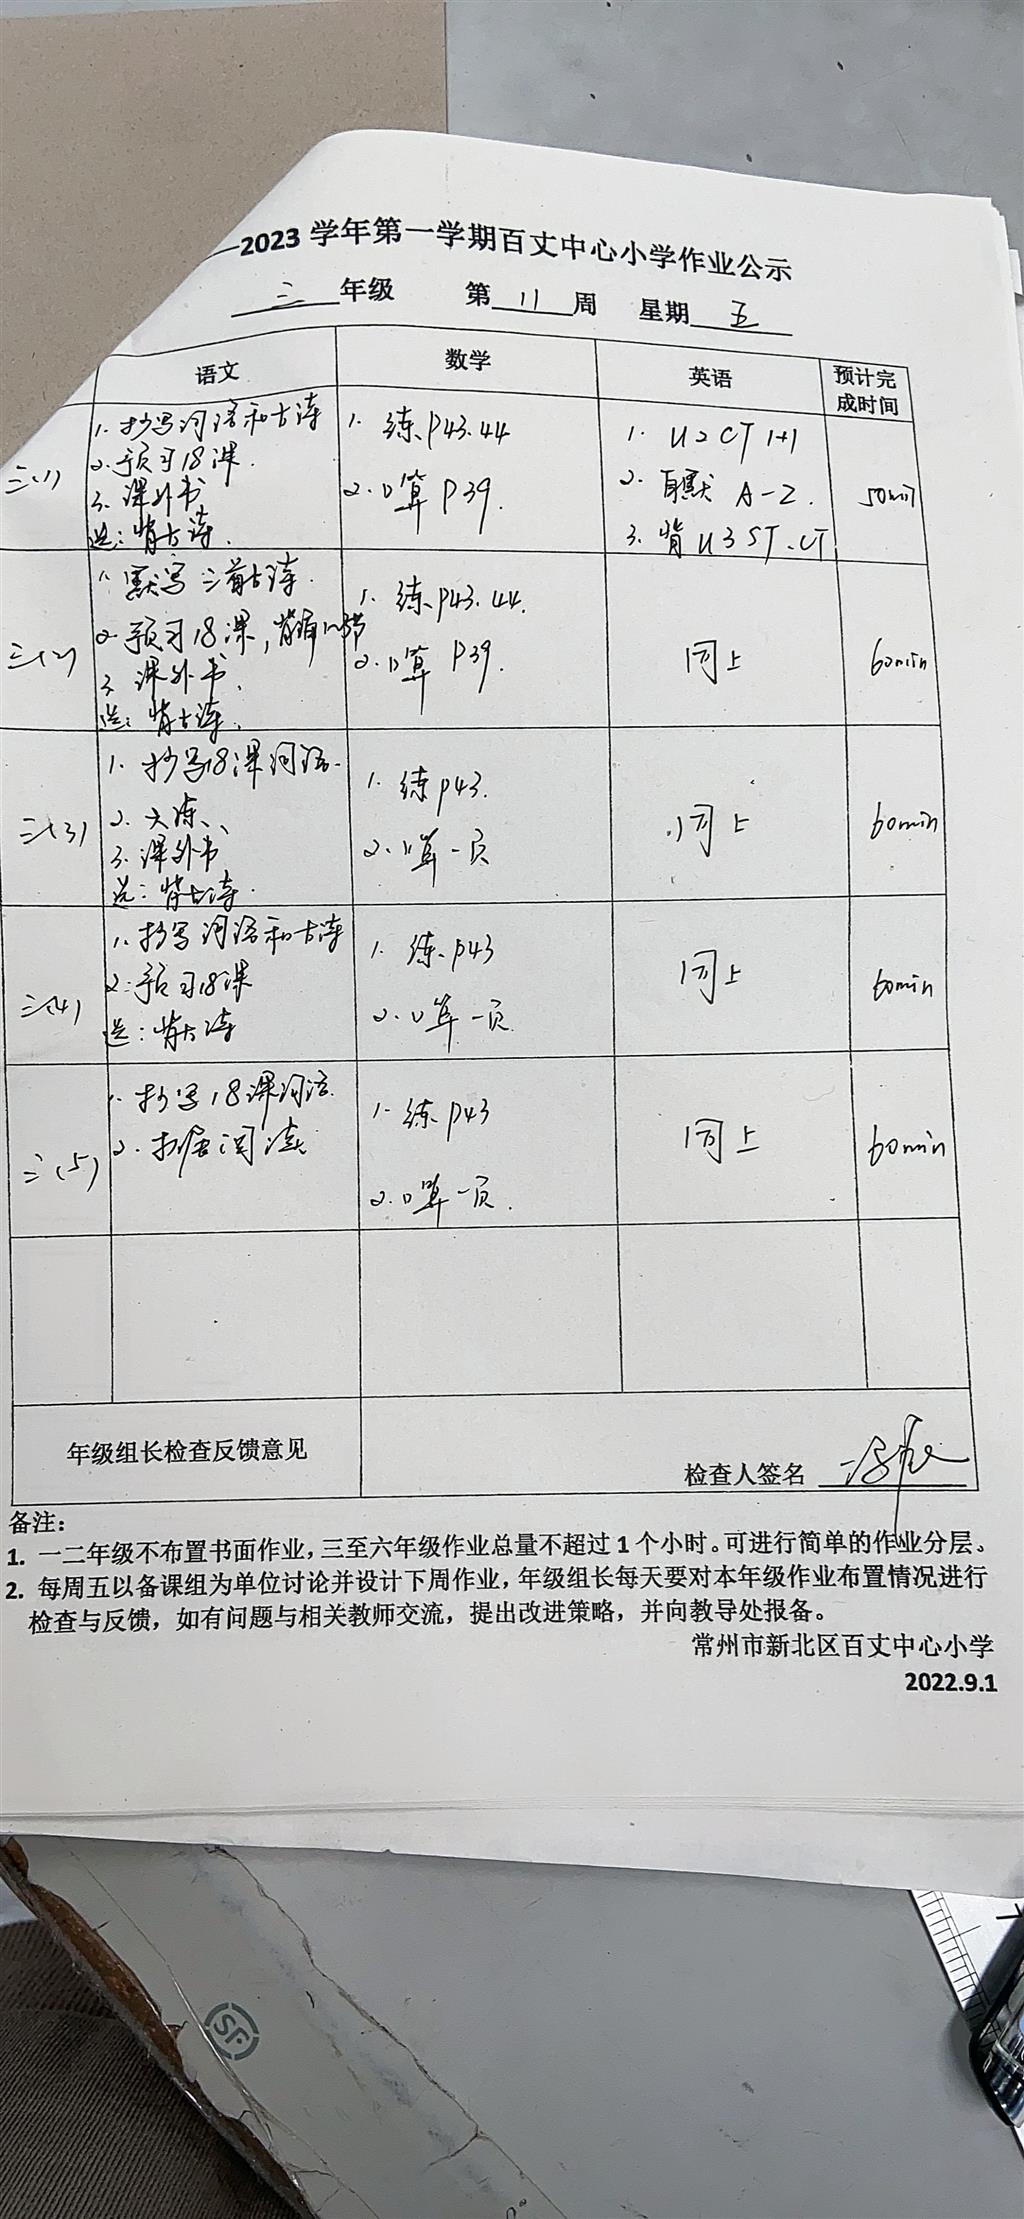 —2023 学年第一学期百丈中心小学作业公示
三 年级 第 11 周 星期 五
语文 数学 英语 预计完成时间
三(1)
1. 抄写词语和古诗
2. 预习18课.
3. 课外书
选: 背古诗.
1. 练P43.44
2. 口算 P39.
1. U2 CT 1+1
2. 自默 A-Z.
3. 背 U3 ST、CT
50min
三(2)
1. 默写三首古诗.
2. 预习18课,
3. 课外书、
选: 背古诗.
1. 练P43.44.
2. 口算 P39.
同上
60min
三(3)
1. 抄写18课词语.
2.
3. 课外书
选: 背古诗.
1. 练P43.
2. 口算一页
同上
60min
三(4)
1. 抄写词语和古诗
2. 预习18课
选: 背古诗
1. 练P43
2. 口算一页.
同上
60min
三(5)
1. 抄写18课词语.
2.
1. 练P43
2. 口算一页.
同上
60min
年级组长检查反馈意见
检查人签名
备注:
1. 一二年级不布置书面作业,三至六年级作业总量不超过 1 个小时。可进行简单的作业分层。
2. 每周五以备课组为单位讨论并设计下周作业,年级组长每天要对本年级作业布置情况进行
检查与反馈,如有问题与相关教师交流,提出改进策略,并向教导处报备。
常州市新北区百丈中心小学
2022.9.1
SF